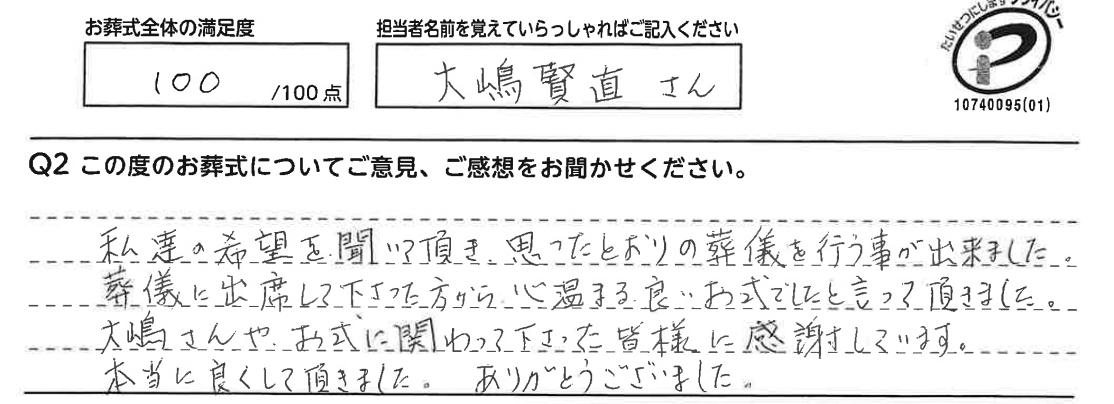 お葬式全体の満足度
担当者名前を覚えていらっしゃればご記入ください
100 /100点
大嶋賢直 さん
たいせつにします プライバシー
10740095(01)
Q2 この度のお葬式についてご意見、ご感想をお聞かせください。
私達の希望を聞いて頂き、思ったとおりの葬儀を行う事が出来ました。
葬儀に出席して下さった方から、心温まる良いお式でしたと言って頂きました。
大嶋さんや、お式に関わって下さった皆様に感謝しています。
本当に良くして頂きました。 ありがとうございました。